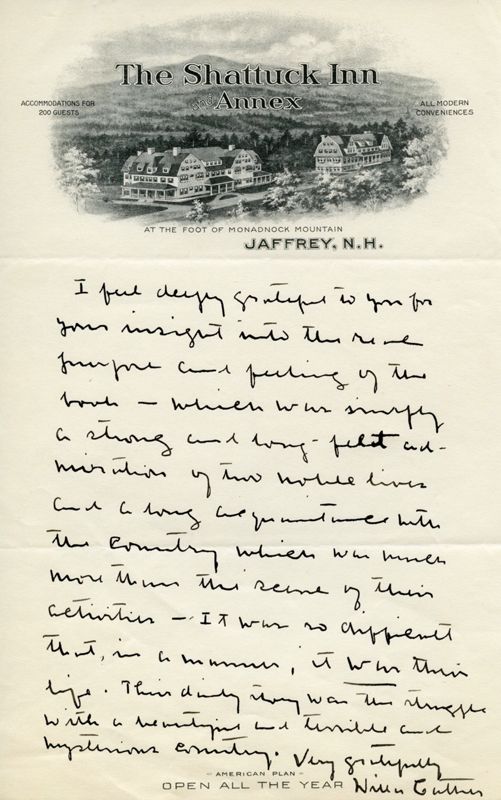 The Shattuck Inn
and Annex
ACCOMMODATIONS FOR
200 GUESTS
ALL MODERN
CONVENIENCES
AT THE FOOT OF MONADNOCK MOUNTAIN
JAFFREY, N.H.
I feel deeply grateful to you for
your insight into the real
purpose and feeling of the
book — which was simply
a strong and long-felt ad-
miration of two noble lives
and a long acquaintance with
the country which was much
more than the scene of their
activities — It was so different
that, in a manner, it was their
life. Their daily story was the struggle
with a beautiful and terrible and
mysterious country. Very gratefully
Willa Cather
- AMERICAN PLAN -
OPEN ALL THE YEAR